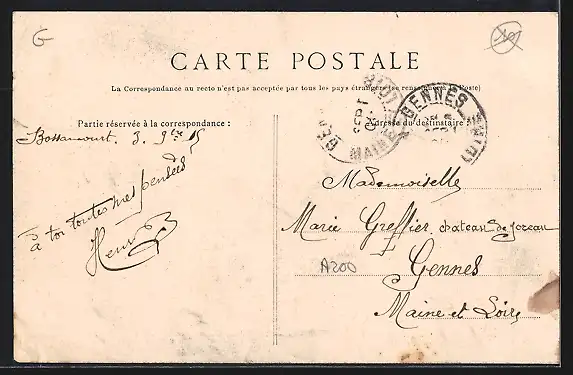 G
CARTE POSTALE
La Correspondance au recto n'est pas acceptée par tous les pays étrangers (se renseigner à la Poste)
Partie réservée à la correspondance :
Adresse du destinataire
Bossancourt. 3. 9bre 15
à toi toutes mes pensées
Henri
GENNES
SEPT
MAINE
Mademoiselle
Marie Greffier, château de Jozeau
A200
Gennes
Maine et Loire